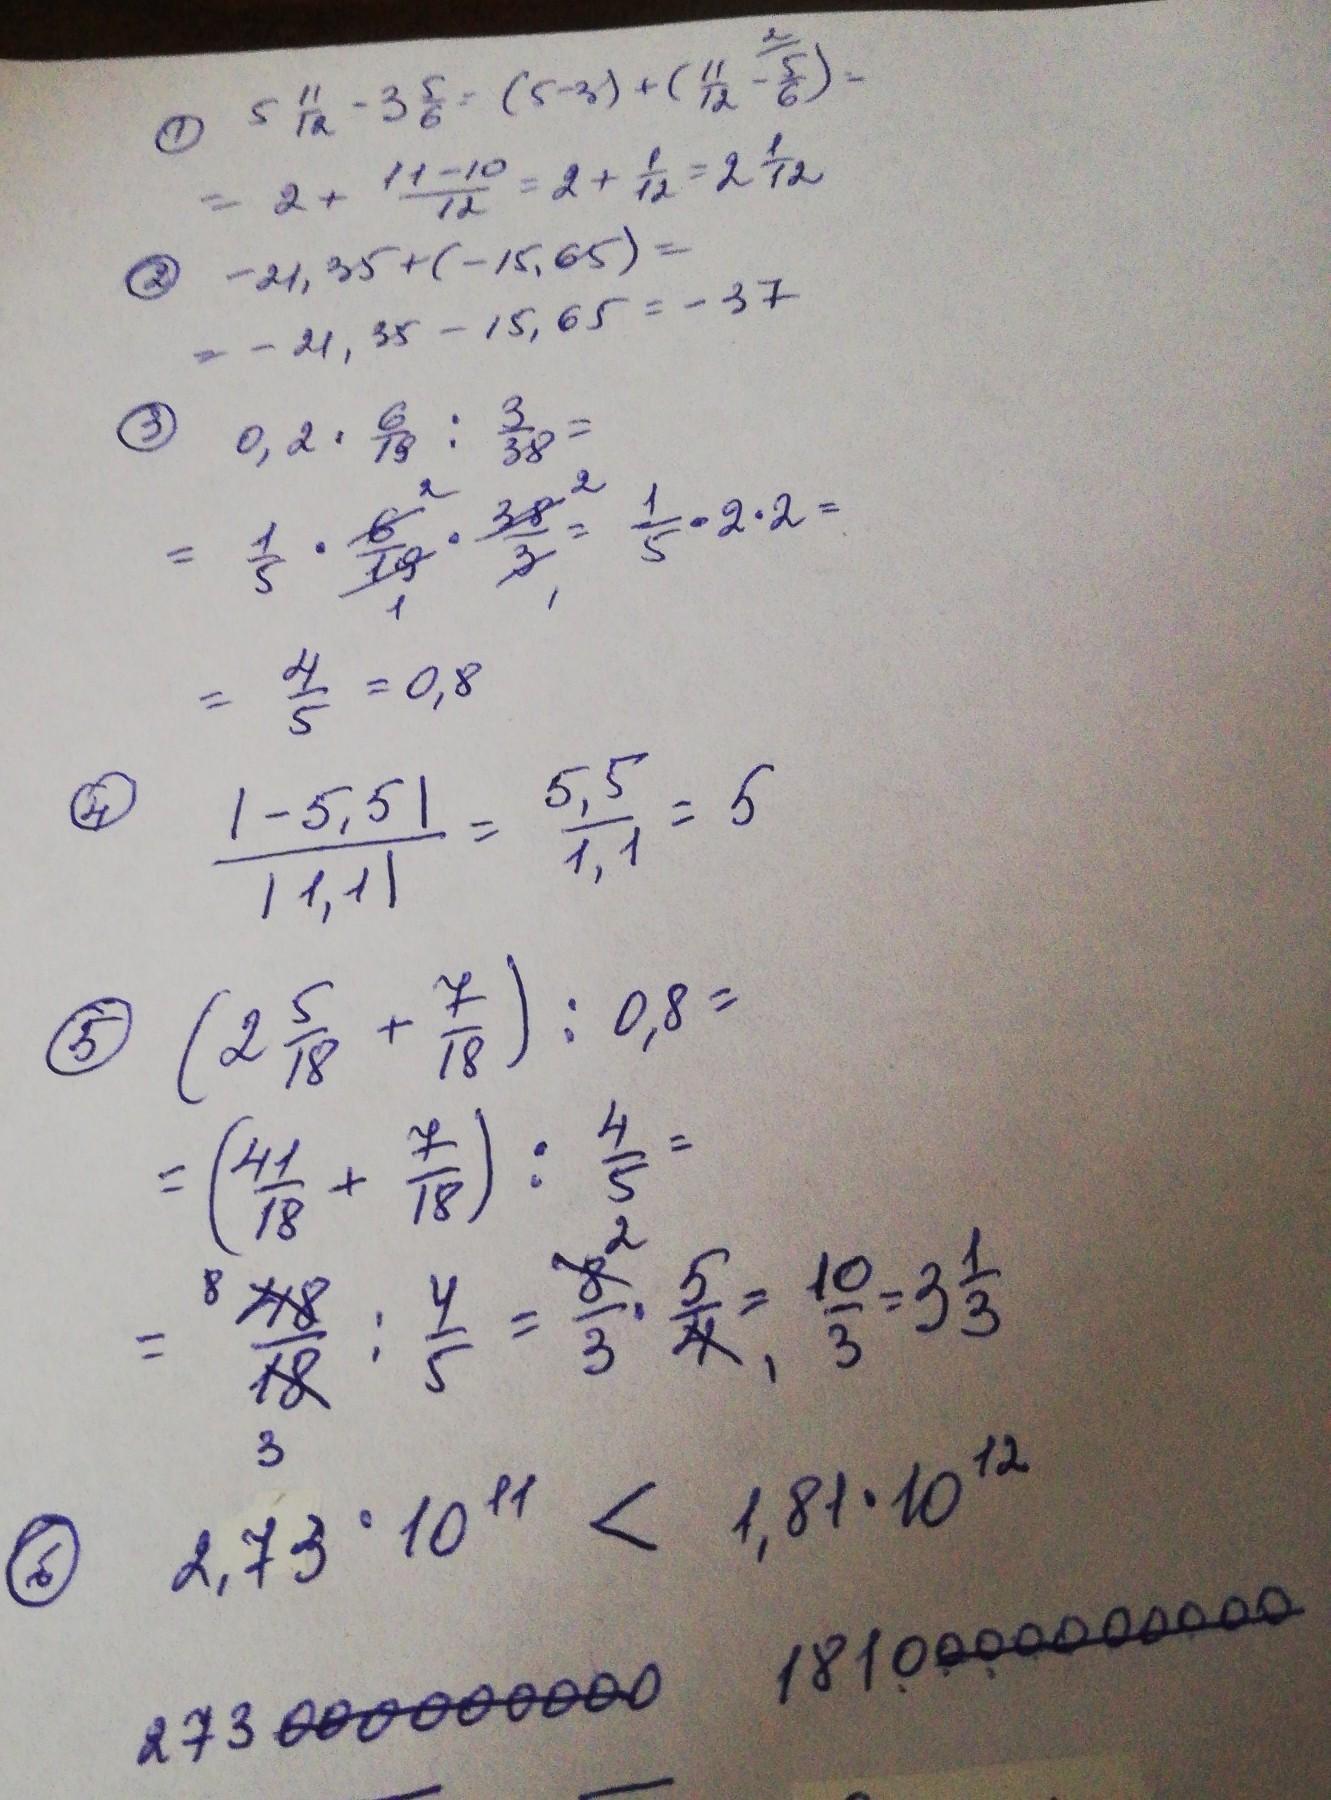 ① 5 11/12 - 3 5/6 = (5-3) + (11/12 - 5/6 ²) =
= 2 + (11-10)/12 = 2 + 1/12 = 2 1/12
② -21,35 + (-15,65) =
= -21,35 - 15,65 = -37
③ 0,2 · 6/19 : 3/38 =
= 1/5 · 6²/19₁ · 38²/3₁ = 1/5 · 2 · 2 =
= 4/5 = 0,8
④ |-5,5|/|1,1| = 5,5/1,1 = 5
⑤ (2 5/18 + 7/18) : 0,8 =
= (41/18 + 7/18) : 4/5 =
= ⁸48/18₃ : 4/5 = 8²/3 · 5/4₁ = 10/3 = 3 1/3
⑥ 2,73 · 10¹¹ < 1,81 · 10¹²
273000000000 1810000000000